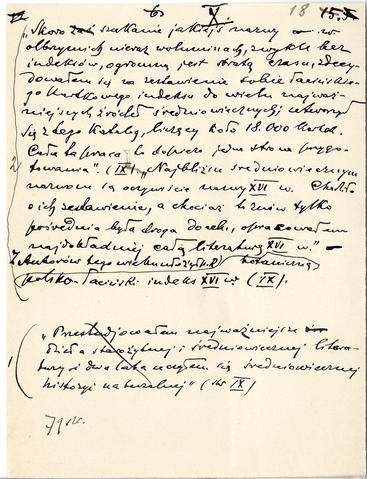 6) X. 18 15.
„Skoro szukanie jakiejś nazwy – w
olbrzymich nieraz woluminach, zwykle bez
indeksów, ogromną jest stratą czasu, zdecy-
dowałem się na zestawienie sobie łacińskie-
go kartkowego indeksu do wielu najważ-
niejszych źródeł średniowiecznych; utworzył
się z tego katalog, liczący koło 18.000 kartek.
Cała ta praca to dopiero jedna strona przygo-
towania". (IX) „Najbliższe średniowiecznym
nazwom są oczywiście nazwy XVI w. Chodziło
o ich zestawienie, a chociaż to znów tylko
pośrednia była droga do celu, opracowałem
najdokładniej całą literaturę XVI w." –
Z autorów tego wieku botaniczną
polsko-łaciński indeks XVI w. (IX).
1) „Przestudjowałem najważniejsze
dzieła starożytnej i średniowiecznej litera-
tury i dwa lata uczyłem się średniowiecznej
historyi naturalnej" (str IX)